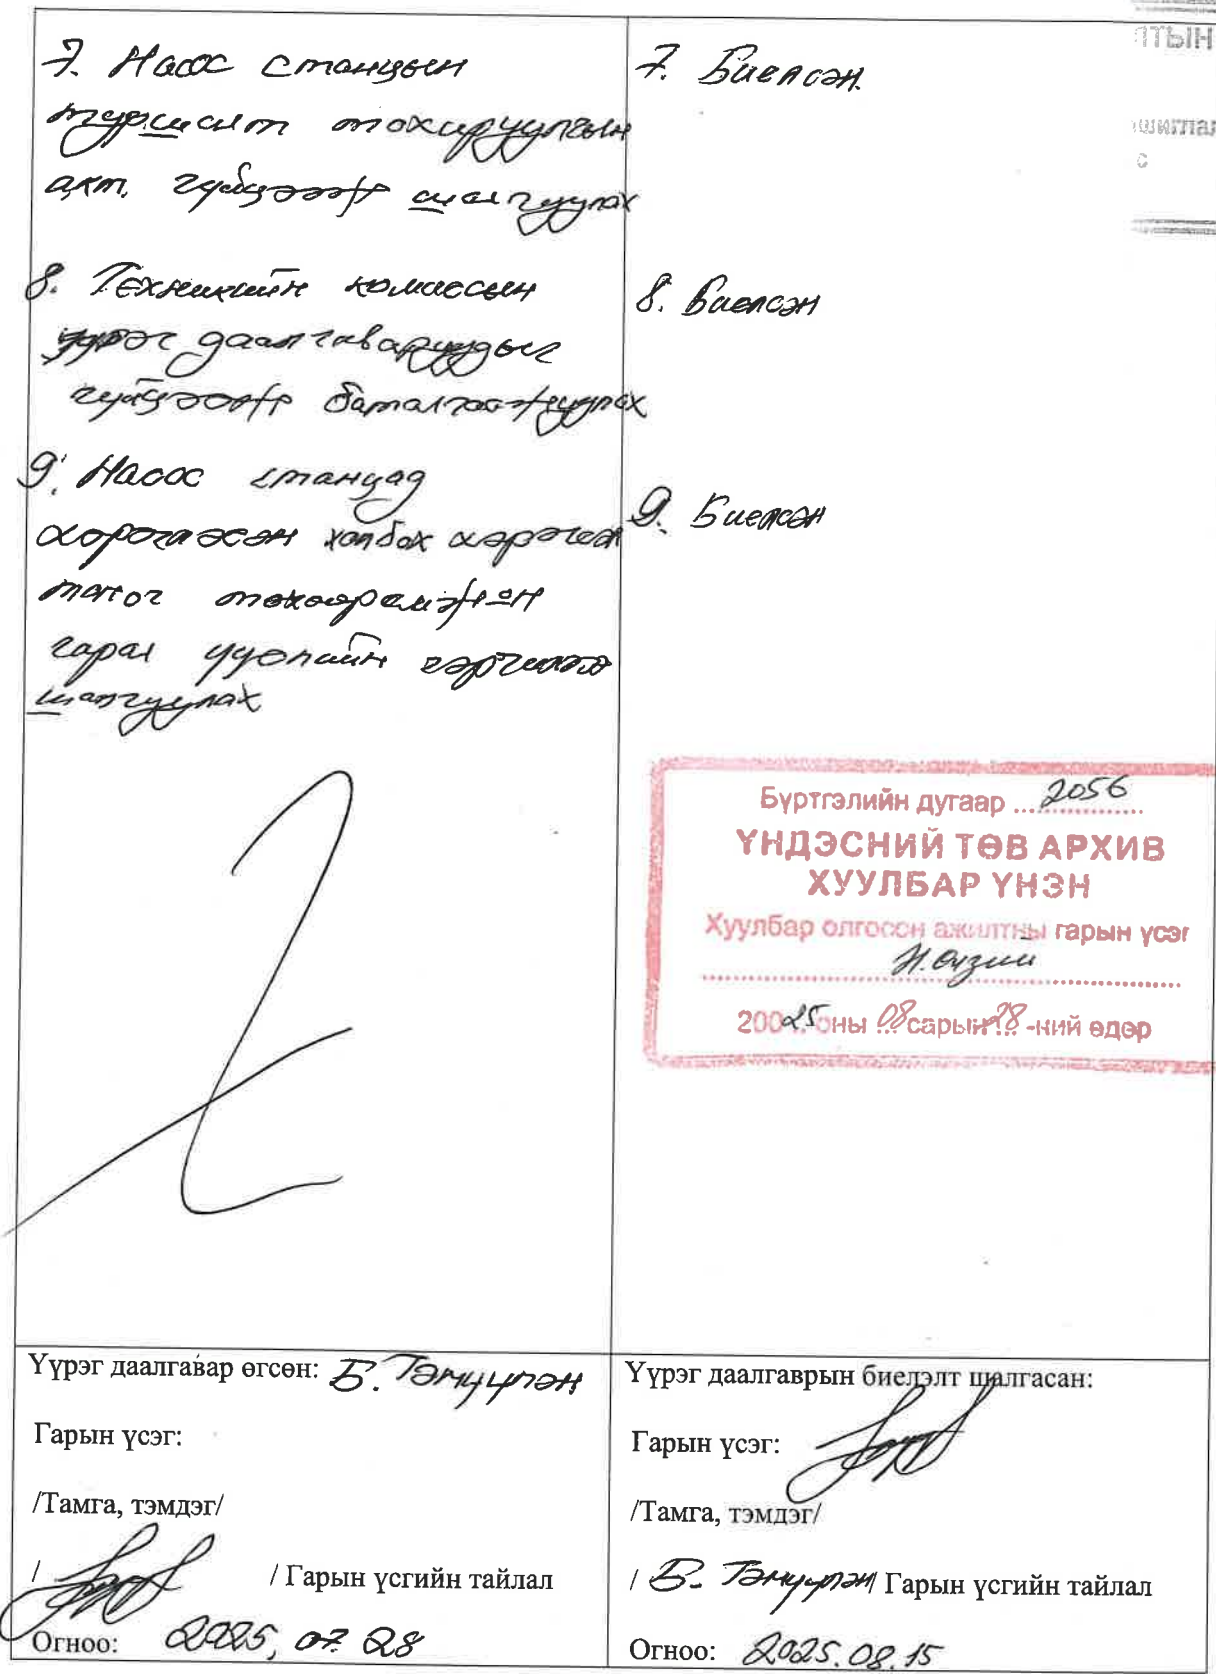 7. Насос станцын
туршилт тохируулгын
акт. гүйцээж шалгуулах
8. Техникийн комиссын
үүрэг даалгаваруудыг
гүйцээж баталгаажуулах
9. Насос станцад
хэрэглэсэн холбох хэрэгсэл
тоног төхөөрөмжийн
гарал үүслийн гэрчилгээ
шалгуулах
7. Биелсэн.
8. Биелсэн
9. Биелсэн
ЛТЫН
шиглал
с
Бүртгэлийн дугаар .... 2056
ҮНДЭСНИЙ ТӨВ АРХИВ
ХУУЛБАР ҮНЭН
Хуулбар олгосон ажилтны гарын үсэг
2025 оны 08 сарын 28 -ний өдөр
Үүрэг даалгавар өгсөн: Б. Тэмүүлэн
Гарын үсэг:
/Тамга, тэмдэг/
/ / Гарын үсгийн тайлал
Огноо: 2025, 07. 28
Үүрэг даалгаврын биелэлт шалгасан:
Гарын үсэг:
/Тамга, тэмдэг/
/ Б. Тэмүүлэн / Гарын үсгийн тайлал
Огноо: 2025.08.15